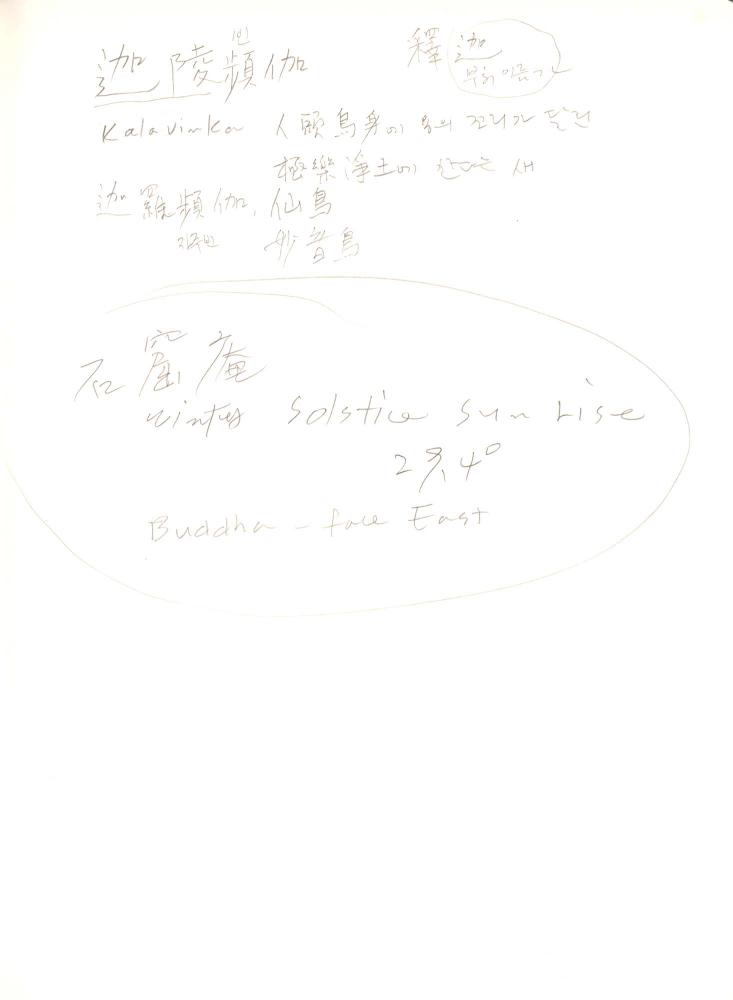 빈
迦陵頻伽
釋迦
부처 이름 가
Kalavinka 人頭鳥身에 용의 꼬리가 달린
極樂淨土에 산다는 새
迦羅頻伽, 仙鳥
자주빈 妙音鳥
石窟庵
winter Solstice Sun rise
4°
Buddha - face East